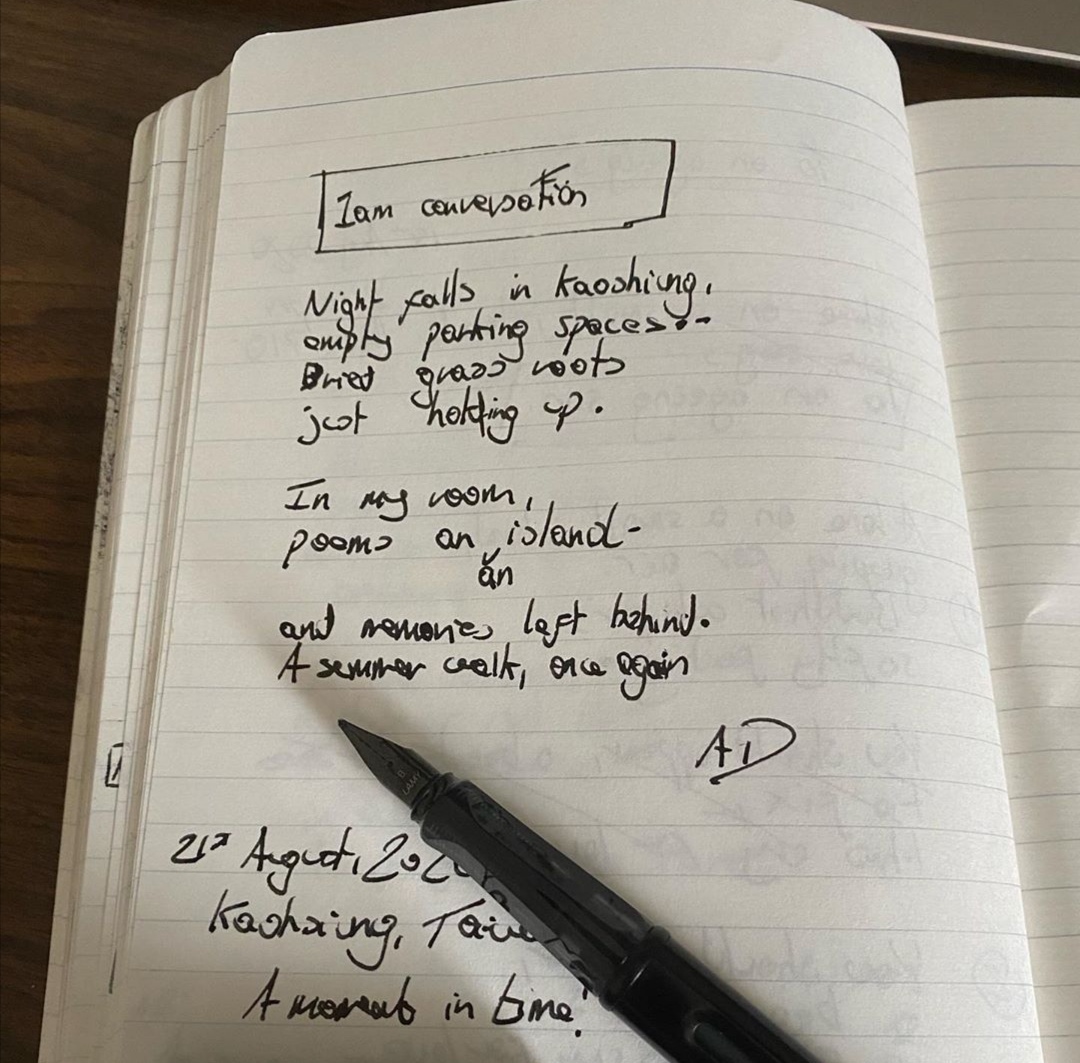 1am conversation
Night falls in Kaoshiung,
empty parking spaces..-
Dried grass roots
just holding up.
In my room,
poems on island-
an
and memories left behind.
A summer walk, once again
AD
21st August, 202
Kaohsiung, Taiw
A moment in time!